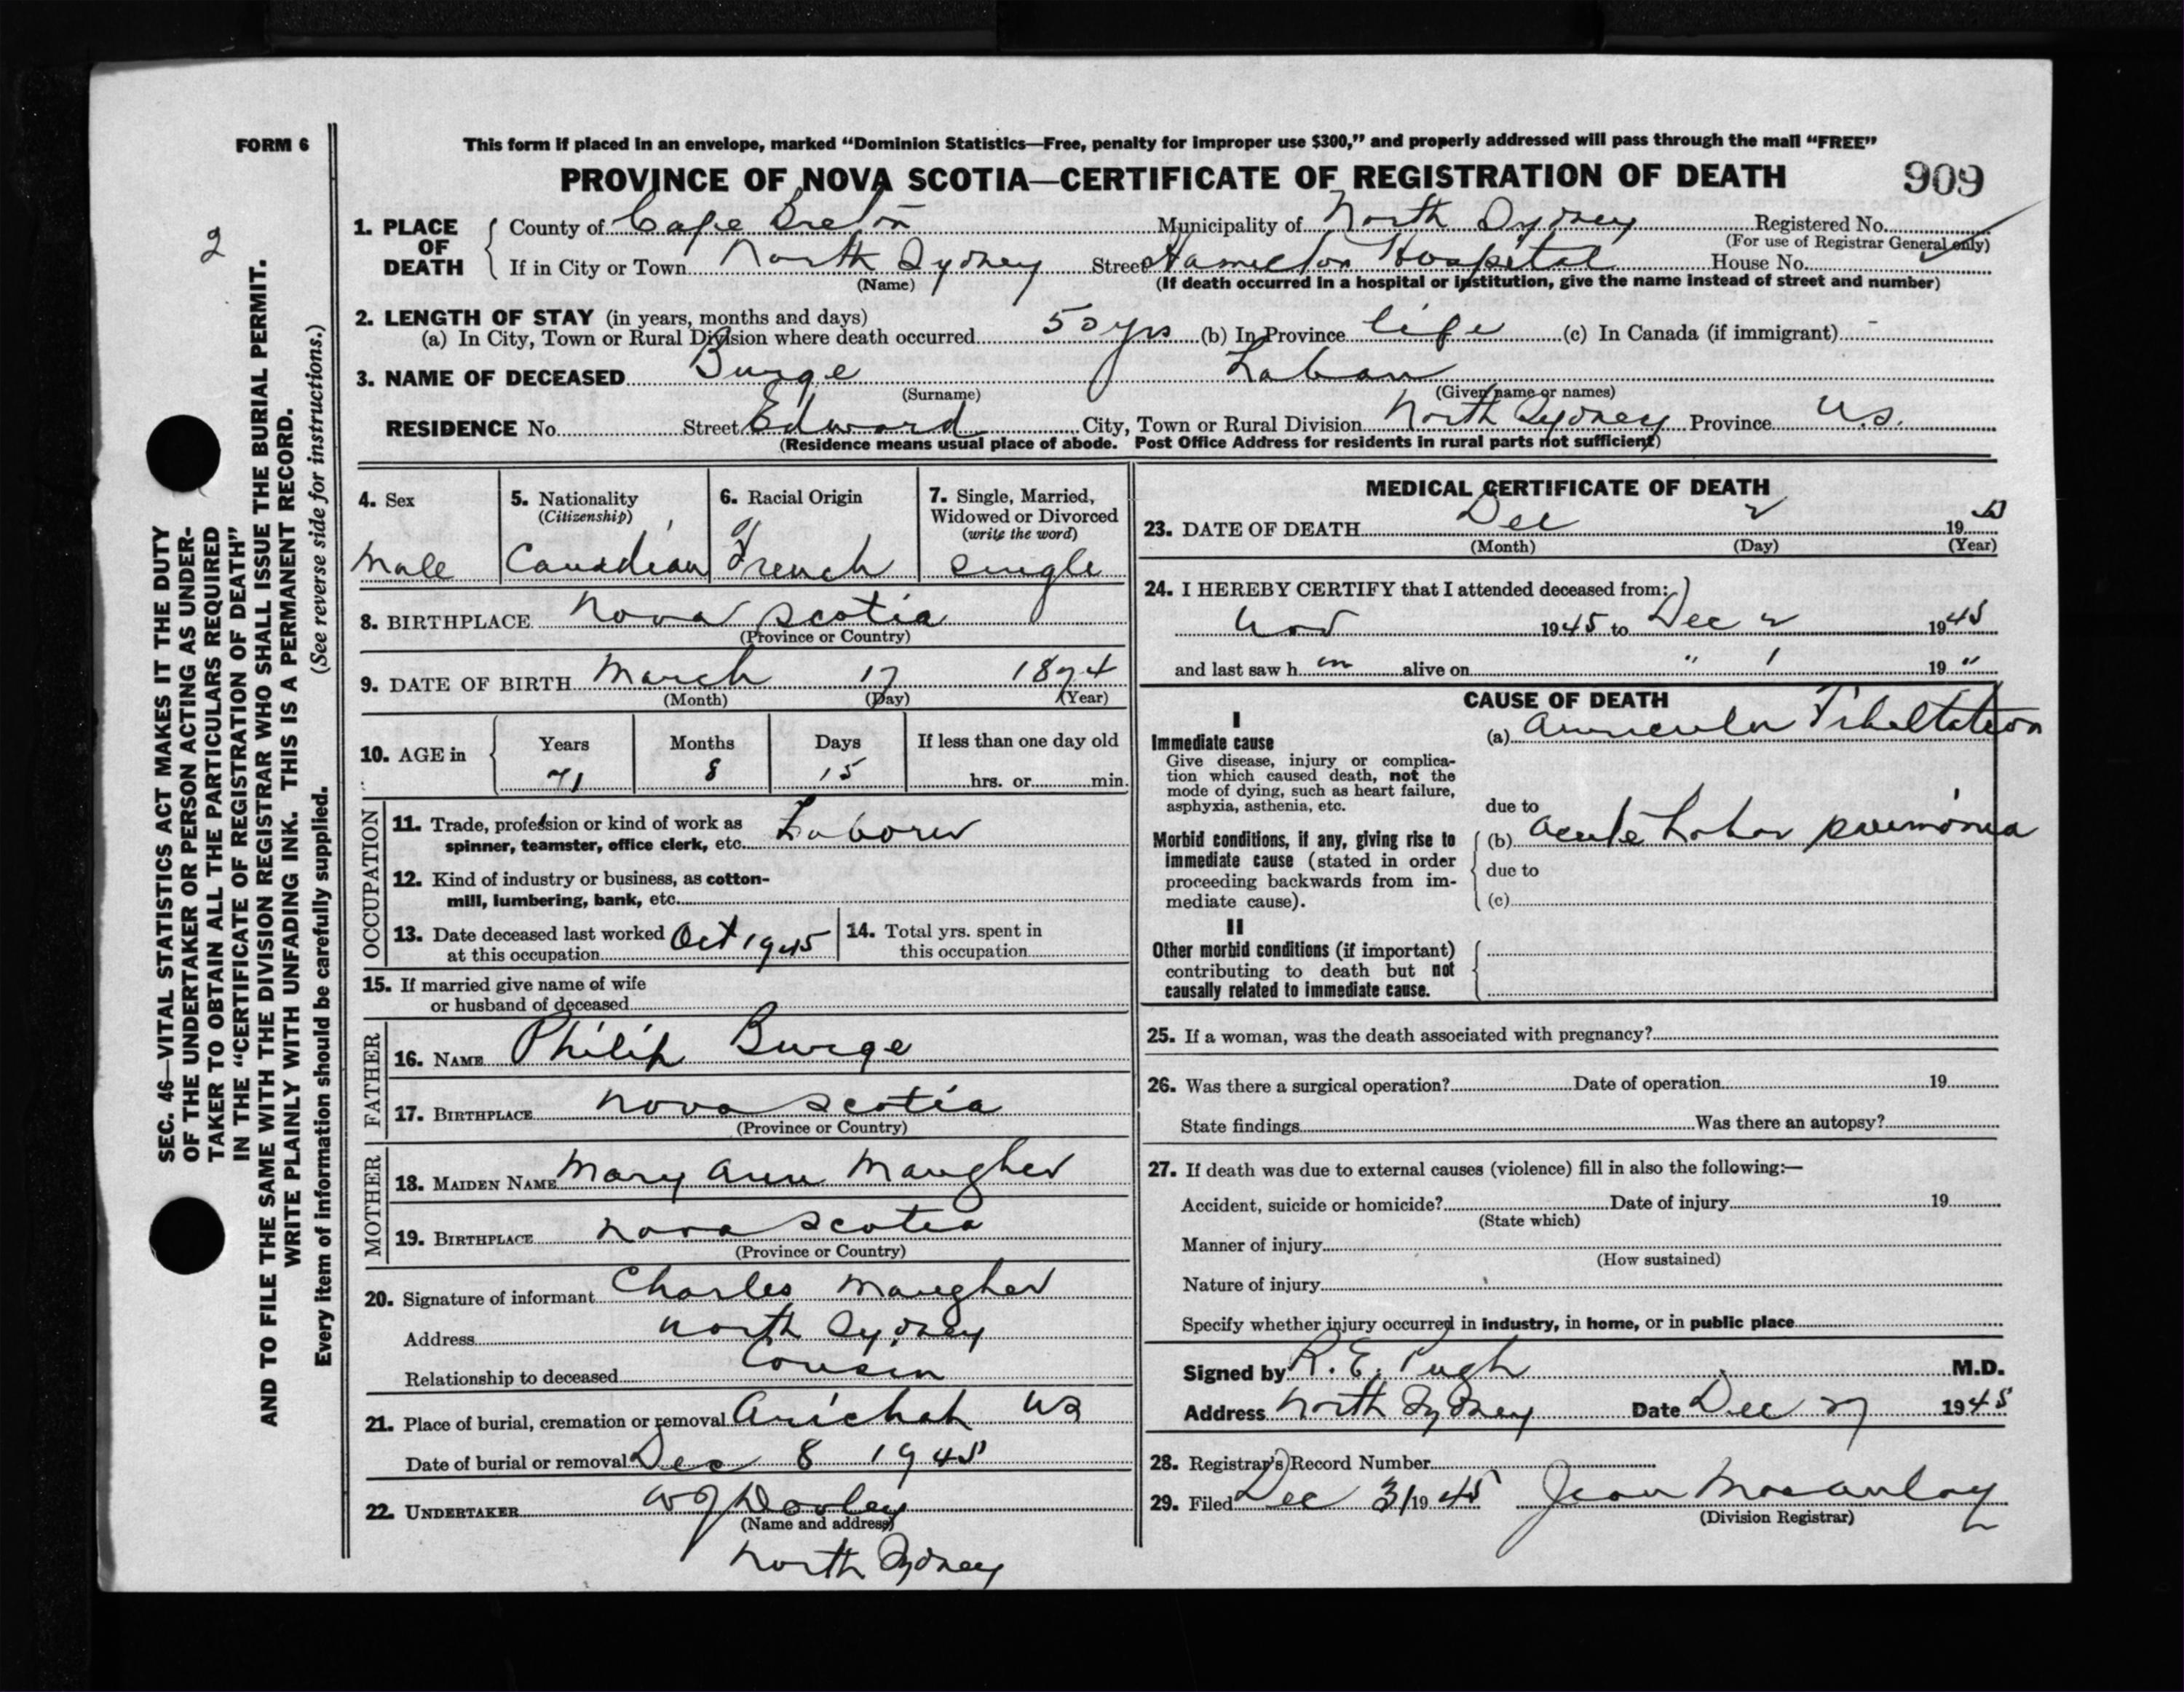 FORM 6
This form if placed in an envelope, marked "Dominion Statistics—Free, penalty for improper use $300," and properly addressed will pass through the mail "FREE"
PROVINCE OF NOVA SCOTIA—CERTIFICATE OF REGISTRATION OF DEATH
909
2
SEC. 46—VITAL STATISTICS ACT MAKES IT THE DUTY
OF THE UNDERTAKER OR PERSON ACTING AS UNDER-
TAKER TO OBTAIN ALL THE PARTICULARS REQUIRED
IN THE "CERTIFICATE OF REGISTRATION OF DEATH"
AND TO FILE THE SAME WITH THE DIVISION REGISTRAR WHO SHALL ISSUE THE BURIAL PERMIT.
WRITE PLAINLY WITH UNFADING INK. THIS IS A PERMANENT RECORD.
Every item of information should be carefully supplied. (See reverse side for instructions.)
1. PLACE OF DEATH
County of Cape Breton Municipality of North Sydney Registered No.
(For use of Registrar General only)
If in City or Town North Sydney Street Hamilton Hospital House No.
(Name) (If death occurred in a hospital or institution, give the name instead of street and number)
2. LENGTH OF STAY (in years, months and days)
(a) In City, Town or Rural Division where death occurred 50 yrs (b) In Province life (c) In Canada (if immigrant) -
3. NAME OF DECEASED Burge Laban
(Surname) (Given name or names)
RESIDENCE No. Street Edward City, Town or Rural Division North Sydney Province N.S.
(Residence means usual place of abode. Post Office Address for residents in rural parts not sufficient)
4. Sex
Male
5. Nationality
(Citizenship)
Canadian
6. Racial Origin
French
7. Single, Married,
Widowed or Divorced
(write the word)
Single
8. BIRTHPLACE Nova Scotia
(Province or Country)
9. DATE OF BIRTH March 17 1874
(Month) (Day) (Year)
10. AGE in
Years Months Days If less than one day old
71 8 15 hrs. or min.
OCCUPATION
11. Trade, profession or kind of work as
spinner, teamster, office clerk, etc. Laborer
12. Kind of industry or business, as cotton-
mill, lumbering, bank, etc.
13. Date deceased last worked
at this occupation Oct 1945
14. Total yrs. spent in
this occupation
15. If married give name of wife
or husband of deceased
FATHER
16. NAME Philip Burge
17. BIRTHPLACE Nova Scotia
(Province or Country)
MOTHER
18. MAIDEN NAME Mary Ann Maugher
19. BIRTHPLACE Nova Scotia
(Province or Country)
20. Signature of informant Charles Maugher
Address North Sydney
Relationship to deceased Cousin
21. Place of burial, cremation or removal Arichat NS
Date of burial or removal Dec 8 1945
22. UNDERTAKER W J Dooley
(Name and address)
North Sydney
MEDICAL CERTIFICATE OF DEATH
23. DATE OF DEATH Dec 2 1945
(Month) (Day) (Year)
24. I HEREBY CERTIFY that I attended deceased from:
Nov 1945 to Dec 2 1945
and last saw h im alive on " 1 19 "
CAUSE OF DEATH
I
Immediate cause
Give disease, injury or complica-
tion which caused death, not the
mode of dying, such as heart failure,
asphyxia, asthenia, etc.
(a) Auricular Fibeltation
due to
Morbid conditions, if any, giving rise to
immediate cause (stated in order
proceeding backwards from im-
mediate cause).
(b) Acute Lobar pneumonia
due to
(c)
II
Other morbid conditions (if important)
contributing to death but not
causally related to immediate cause.
25. If a woman, was the death associated with pregnancy?
26. Was there a surgical operation? Date of operation 19
State findings Was there an autopsy?
27. If death was due to external causes (violence) fill in also the following:—
Accident, suicide or homicide? Date of injury 19
(State which)
Manner of injury
(How sustained)
Nature of injury
Specify whether injury occurred in industry, in home, or in public place
Signed by R. E. Pugh M.D.
Address North Sydney Date Dec 27 1945
28. Registrar's Record Number
29. Filed Dec 31 19 45 Jean Macaulay
(Division Registrar)